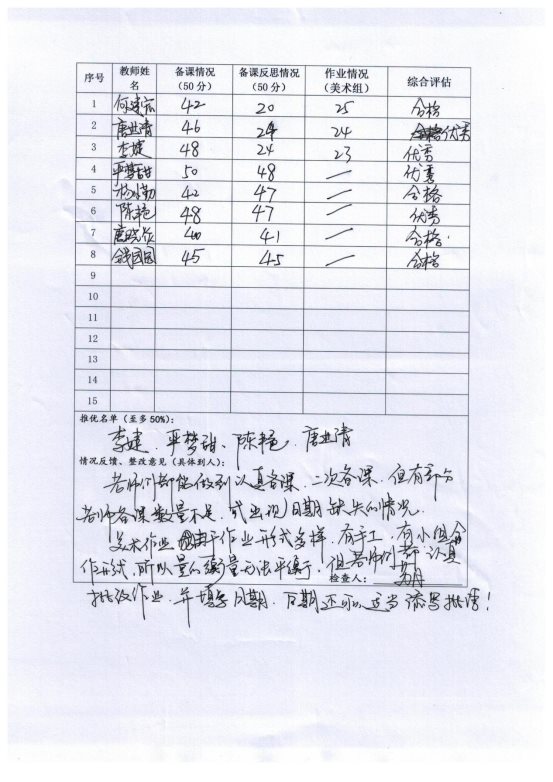 序号 教师姓名 备课情况（50分） 备课反思情况（50分） 作业情况（美术组） 综合评估
1 何建 42 20 25 合格
2 唐兆清 46 24 24 优秀
3 李婕 48 24 23 优秀
4 严梦甜 50 48 / 优秀
5 杨 勤 42 47 / 合格
6 陈艳 48 47 / 优秀
7 唐晓 40 41 / 合格.
8 钱园园 45 45 / 合格
9
10
11
12
13
14
15
推优名单（至多50%）：
李婕、严梦甜、陈艳、唐兆清
情况反馈、整改意见（具体到人）：
老师们都能做到认真备课、二次备课，但有部分
老师备课数量不足，或出现日期缺失的情况。
美术作业由于作业形式多样，有手工、有小组合
作形式，所以量的衡量无法平衡，但老师们都认真
检查人：
批改作业，并填写日期，后期还可以适当添写批语！